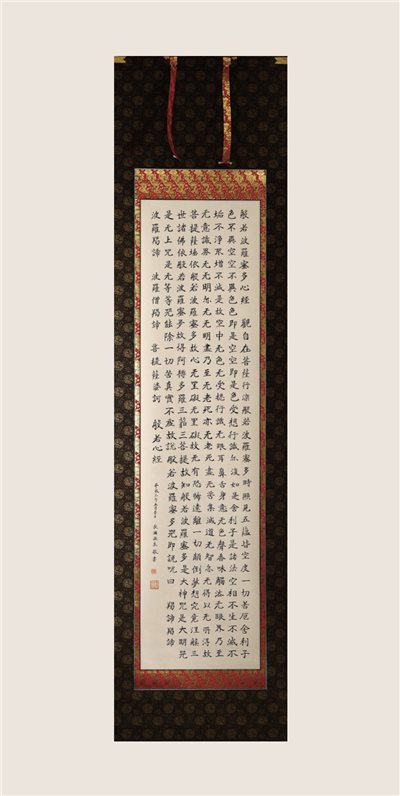 般若波羅蜜多心經 觀自在菩薩行深般若波羅蜜多時照見五蘊皆空度一切苦厄舍利子
色不異空空不異色色即是空空即是色受想行識亦復如是舍利子是諸法空相不生不滅不
垢不淨不增不減是故空中无色无受想行識无眼耳鼻舌身意无色聲香味觸法无眼界乃至
无意識界无无明亦无无明盡乃至无老死亦无老死盡无苦集滅道无智亦无得以无所得故
菩提薩埵依般若波羅蜜多故心无罣礙无罣礙故无有恐怖遠離一切顛倒夢想究竟涅槃三
世諸佛依般若波羅蜜多故得阿耨多羅三藐三菩提故知般若波羅蜜多是大神咒是大明咒
是无上咒是无等等咒能除一切苦真實不虛故說般若波羅蜜多咒即說咒曰 羯諦羯諦
波羅羯諦 波羅僧羯諦 菩提薩婆訶 般若心經